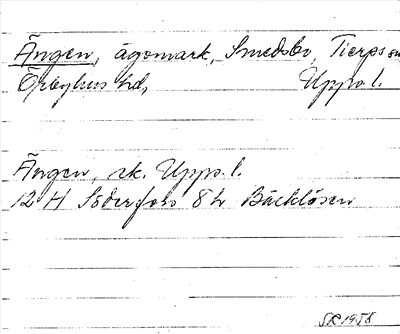 Ängen, ägomark, Smedsbo, Tierps sn
Örbyhus hd, Upps. l.
Ängen, ek. Upps. l.
12 H Söderfors 8 h Bäcklösen
SK 1958